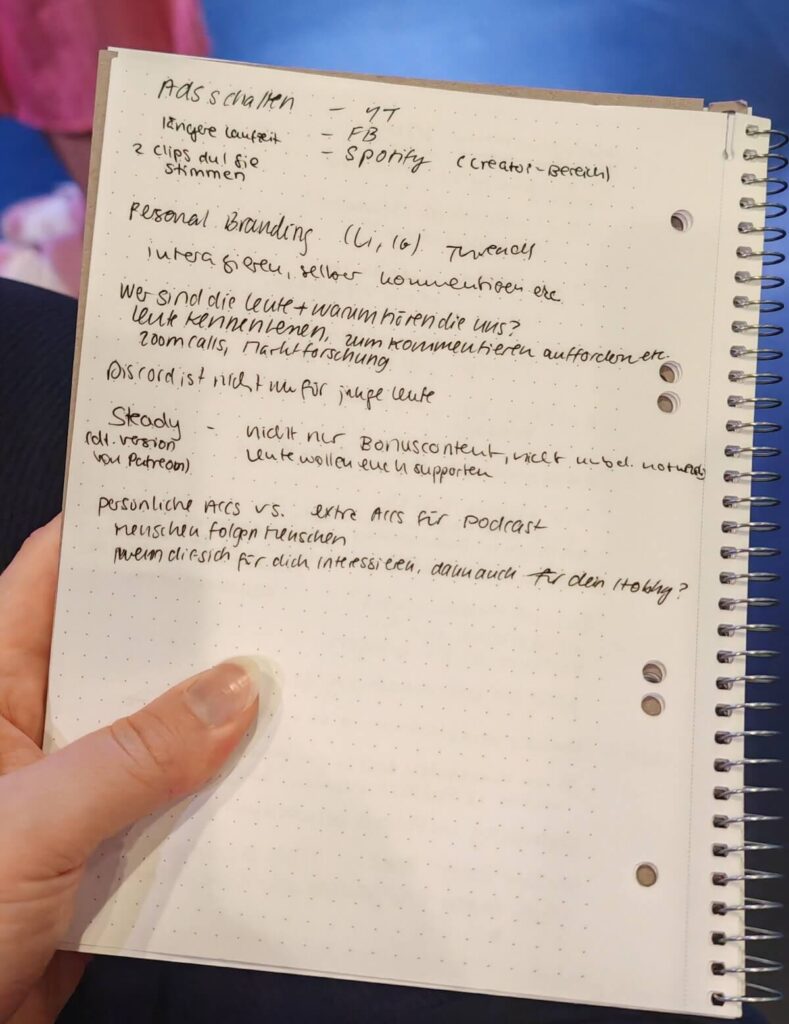 Ads schalten - YT
längere Laufzeit - FB
2 Clips die
stimmen - Spotify (Creator-Bereich)
Personal Branding (Li, IG) Threads
interagieren, selber kommentieren etc
Wer sind die Leute + warum hören die uns?
Leute kennenlernen, zum Kommentieren auffordern etc.
Zoomcalls, Marktforschung
Discord ist nicht nur für junge Leute
Steady - nicht nur Bonuscontent, nicht unbed. notwendig
(dt. Version Leute wollen euch supporten
von Patreon)
persönliche Accs vs. extra Accs für Podcast
Menschen folgen Menschen
wenn die sich für dich interessieren, dann auch für dein Hobby?